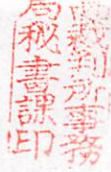 裁判所事務
局秘書課印